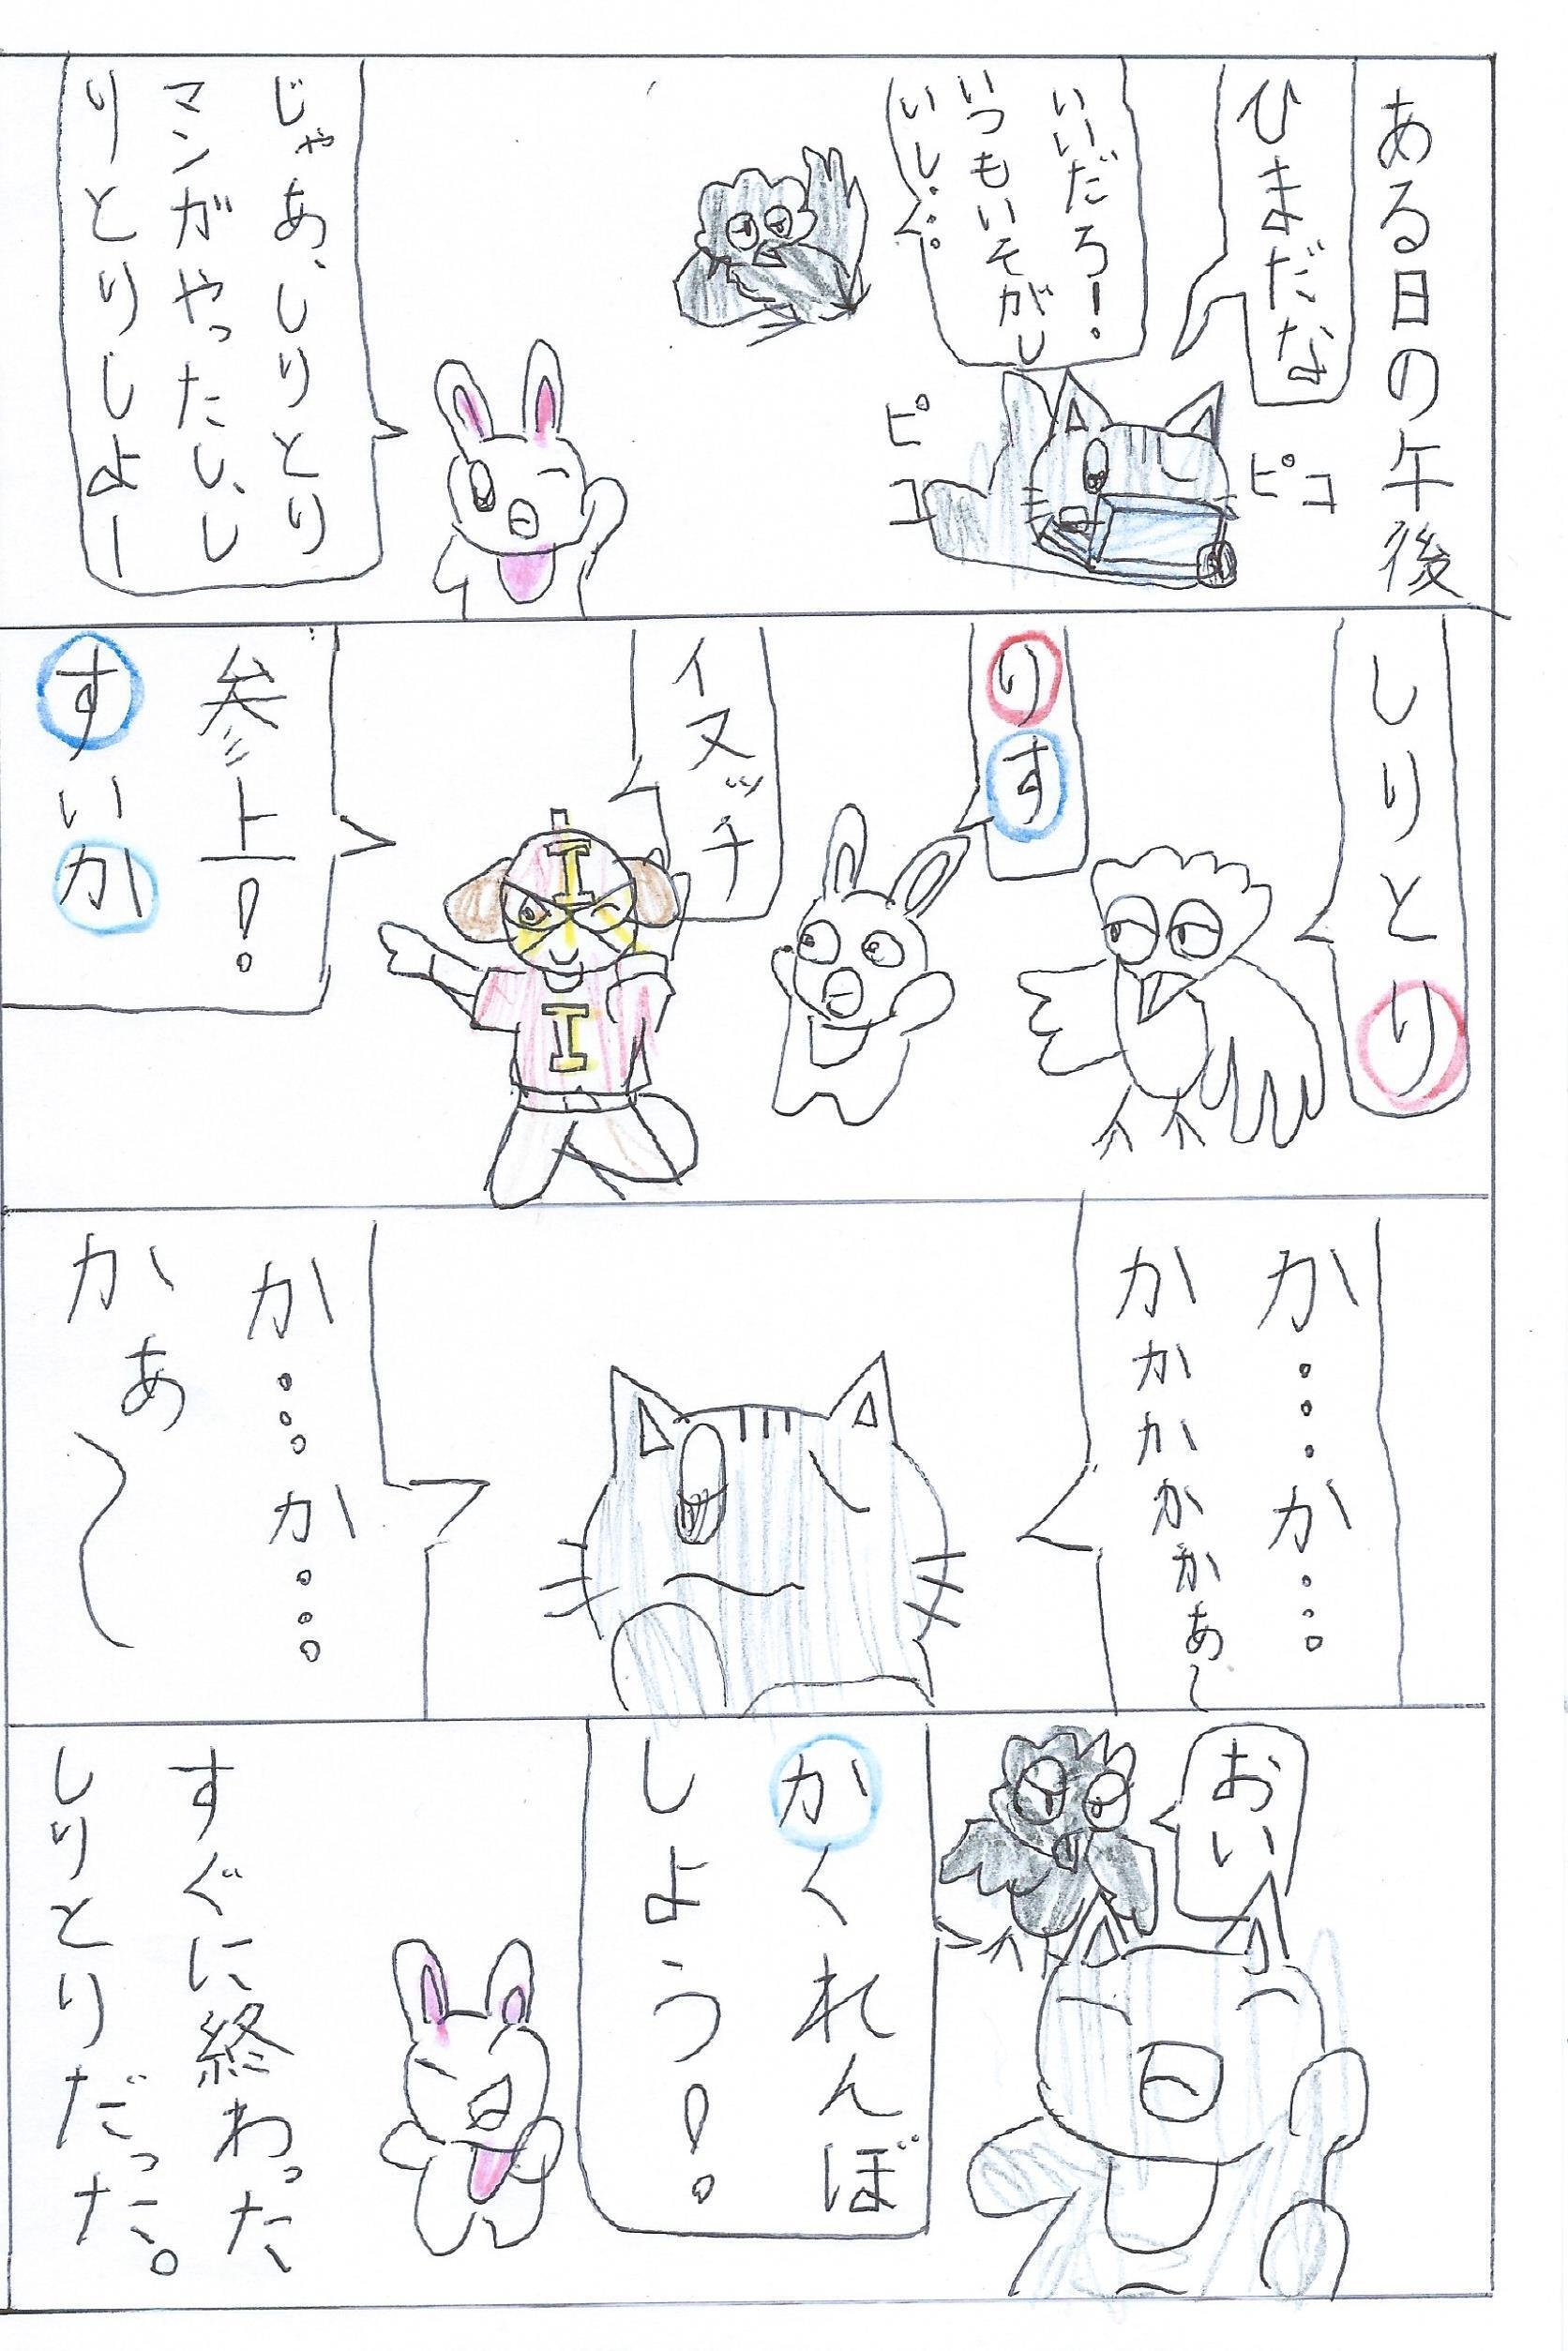 ある日の午後
ひまだな
いいだろ!
いつもいそがし
いし…
ピコ
ピコ
じゃあ、しりとり
マンガやったし、し
りとりしよー
しりとり
りす
イヌッチ
参上!
すいか
か…か…
かかかかかぁ〜
か…か…
かぁ〜
おい
かくれんぼ
しよう!
すぐに終わった
しりとりだった。